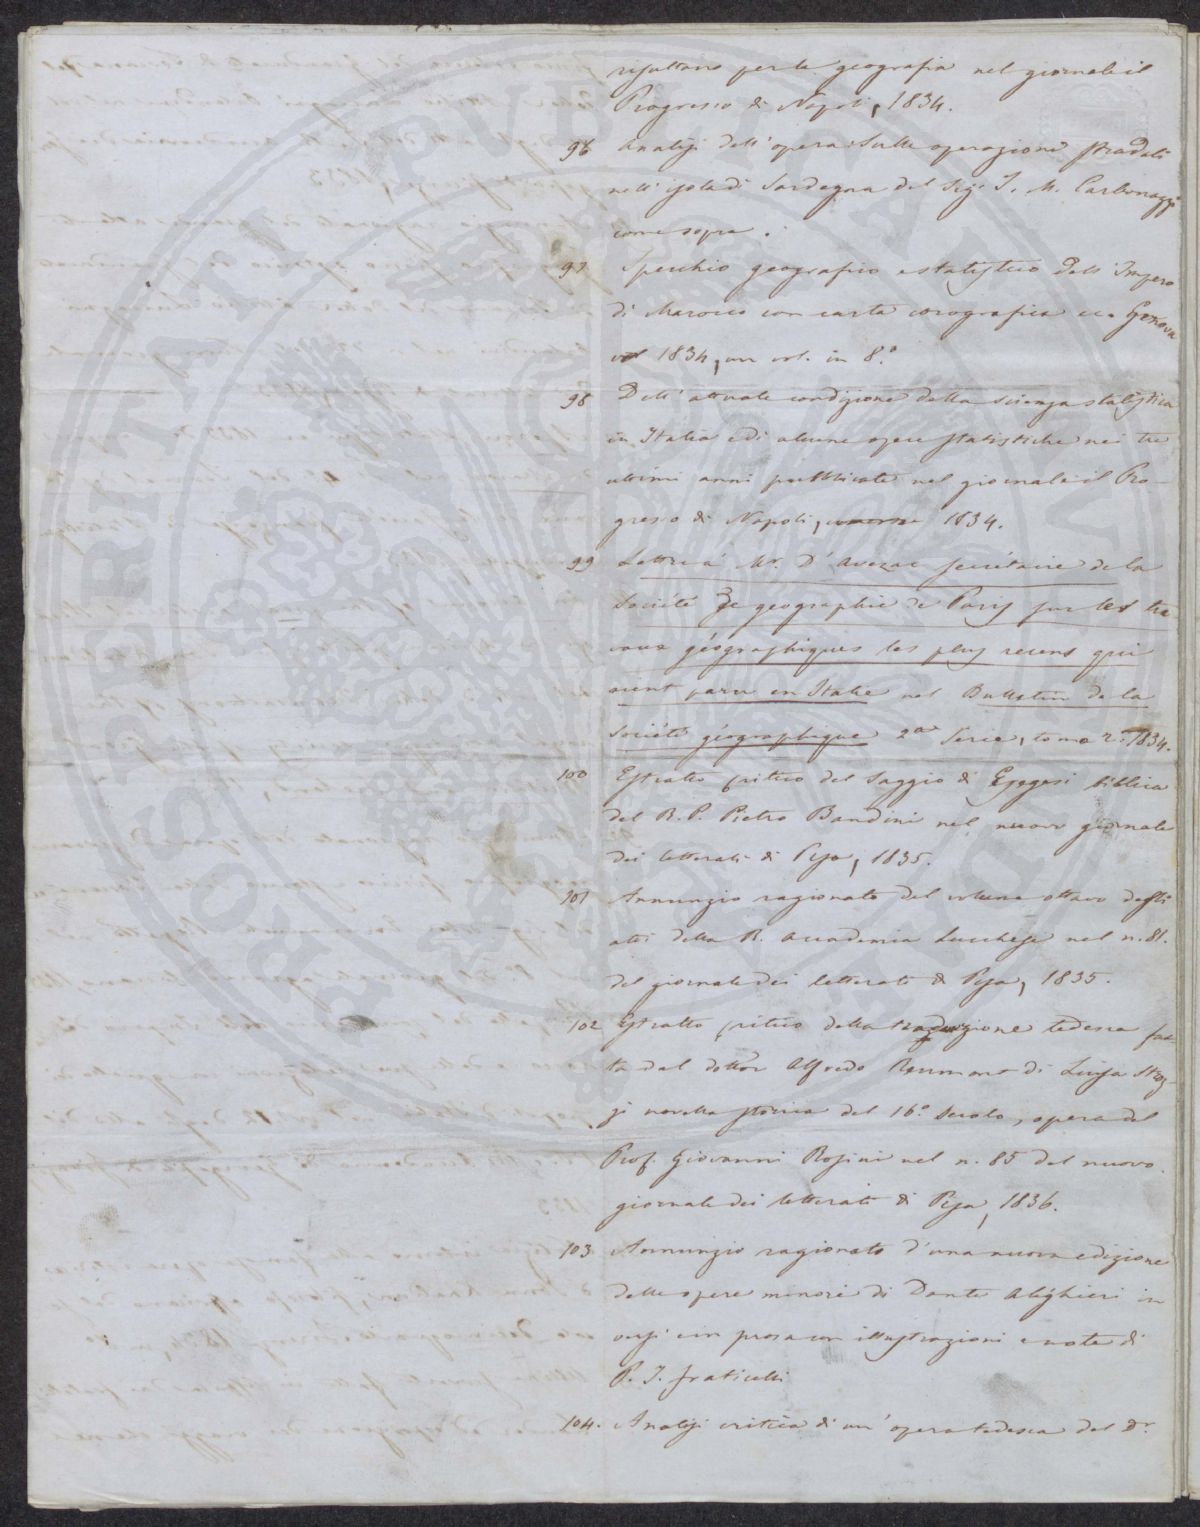 risultano per la geografia nel giornale il
Progresso di Napoli, 1834.
96 Analisi dell'opera: Sulle operazioni stradali
nell'isola di Sardegna del Sigr. I. M. Carbonazzi
come sopra.
97 Specchio geografico e statistico dell'Impero
di Marocco con carta corografica ec. Genova
1834, un vol. in 8.o
98 Dell'attuale condizione della scienza statistica
in Italia e di alcune opere statistiche nei tre
ultimi anni pubblicate nel giornale il Pro-
gresso di Napoli, 1834.
99 Lettre à Mr. D'Avezac secrétaire de la
Société de geographie de Paris sur les tra
vaux géographiques les plus recens qui
aient paru en Italie nel Bulletin de la
Société géographique 2a Serie, tomo 2.o 1834.
100 Estratto critico del Saggio di Esegesi biblica
del R. P. Pietro Bandini nel nuovo giornale
dei letterati di Pisa, 1835.
101 Annunzio ragionato del volume ottavo degli
atti della R. Accademia Lucchese nel n. 81.
del giornale dei letterati di Pisa, 1835.
102 Estratto critico della traduzione tedesca fat
ta dal dottor Alfredo Reumont di Luisa Stroz-
zi novella storica del 16.o Secolo, opera del
Prof. Giovanni Rosini nel n. 85 del nuovo
giornale dei letterati di Pisa, 1836.
103 Annunzio ragionato d'una nuova edizione
delle opere minori di Dante Alighieri in
versi e in prosa con illustrazioni e note di
P. I. Fraticelli
104. Analisi critica di un'opera tedesca del Dr.
PROSPERITATI PVBLICAE